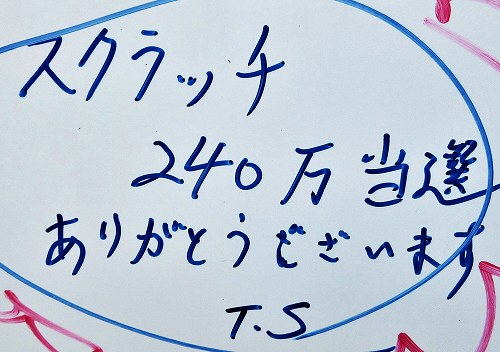 スクラッチ
240万当選
ありがとうございます
T.S